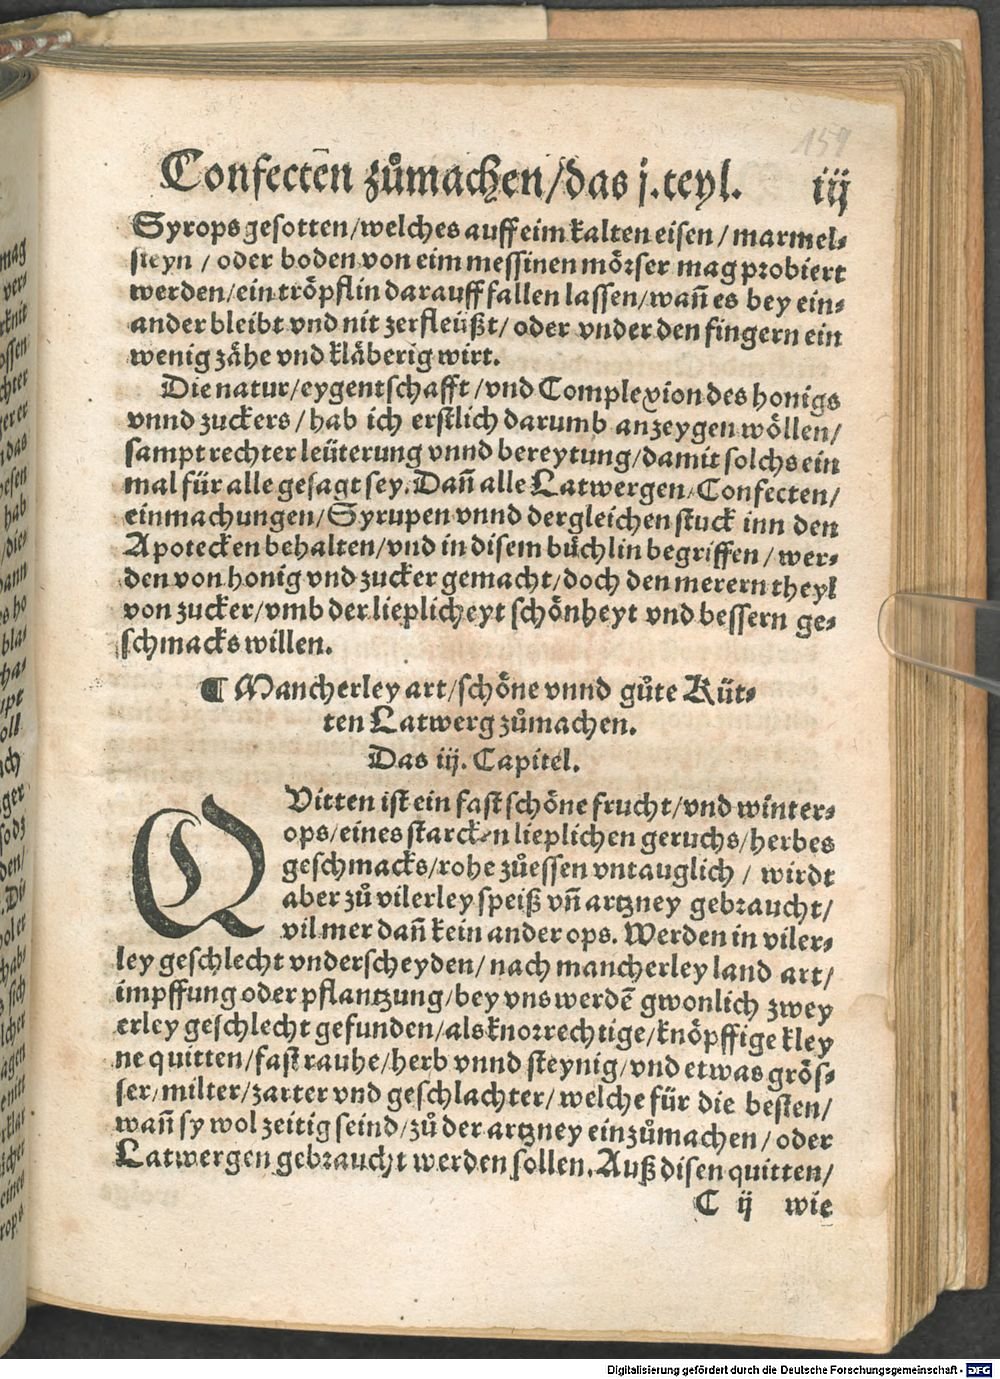 159
Confectēn zůmachen/das j.teyl. iij
Syrops gesotten/welches auff eim kalten eisen/marmel-
steyn/oder boden von eim messinen mörser mag probiert
werden/ein tröpflin darauff fallen lassen/wañ es bey ein-
ander bleibt vnd nit zerfleüßt/oder vnder den fingern ein
wenig zähe vnd kläberig wirt.
Die natur/eygentschafft/vnd Complexion des honigs
vnnd zuckers/hab ich erstlich darumb anzeygen wöllen/
sampt rechter leüterung vnnd bereytung/damit solchs ein
mal für alle gesagt sey. Dañ alle Latwergen/Confecten/
einmachungen/Syrupen vnnd dergleichen stuck inn den
Apotecken behalten/vnd in disem büchlin begriffen/wer-
den von honig vnd zucker gemacht/doch den merern theyl
von zucker/vmb der lieplicheyt schönheyt vnd bessern ge-
schmacks willen.
¶ Mancherley art/schöne vnnd gůte Küt-
ten Latwerg zůmachen.
Das iij. Capitel.
QVitten ist ein fast schöne frucht/vnd winter-
ops/eines starcken lieplichen geruchs/herbes
geschmacks/rohe zůessen vntauglich/wirdt
aber zů vilerley speiß vñ artzney gebraucht/
vil mer dañ kein ander ops. Werden in viler-
ley geschlecht vnderscheyden/nach mancherley land art/
impffung oder pflantzung/bey vns werdē gwonlich zwey
erley geschlecht gefunden/als knorrechtige/knöpffige kley
ne quitten/fast rauhe/herb vnnd steynig/vnd etwas grös-
ser/milter/zarter vnd geschlachter/welche für die besten/
wañ sy wol zeitig seind/zů der artzney einzůmachen/oder
Latwergen gebraucht werden sollen. Auß disen quitten/
C ij wie
Digitalisierung gefördert durch die Deutsche Forschungsgemeinschaft - DFG